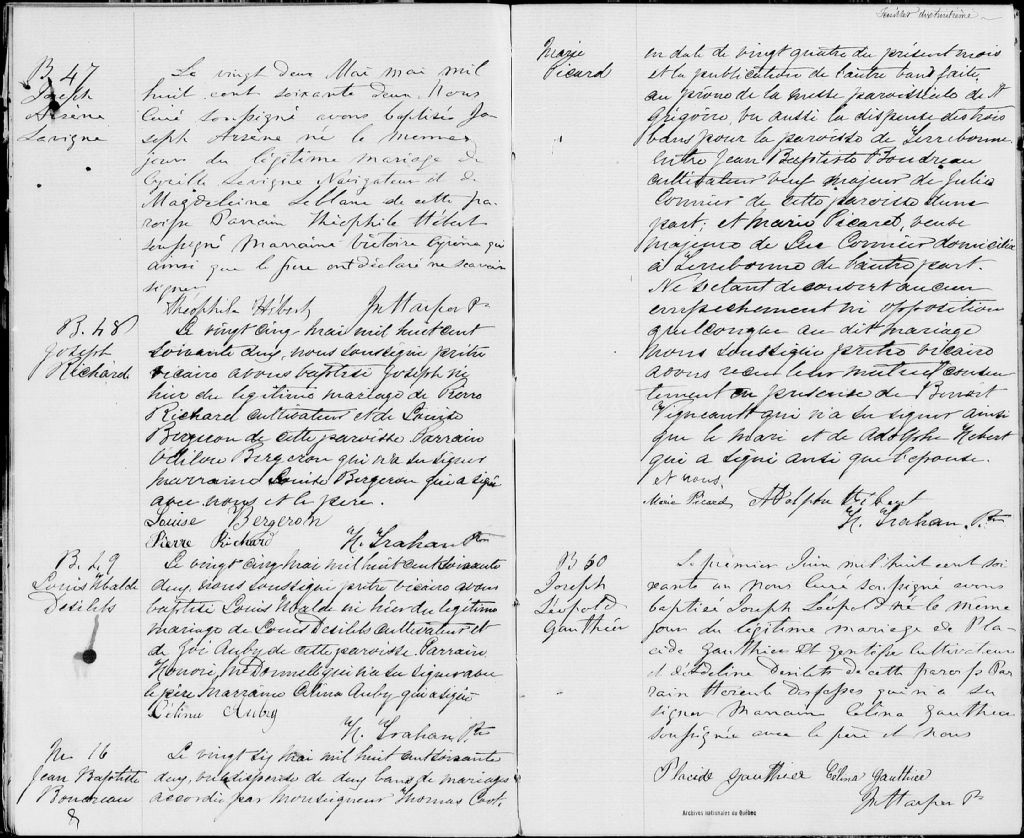 B. 47
Joseph
Arsène
Lavigne
Le vingt deux Mai mai mil
huit cent soixante deux Nous
Curé soussigné avons baptisé Jo
seph Arsène né le même
jour du légitime mariage de
Cyrille Lavigne Navigateur et de
Magdeleine Leblanc de cette pa-
roisse Parrain Théophile Hébert
soussigné Marraine Victoire qui
ainsi que le père ont déclaré ne scavoir
signer
Théophile Hébert Jn Harper Ptr
B. 48
Joseph
Richard
Le vingt cinq mai mil huit cent
soixante deux, nous soussigné prêtre
vicaire avons baptisé Joseph né
hier du légitime mariage de Pierre
Richard cultivateur et de Louise
Bergeron de cette paroisse Parrain
Bergeron qui n'a su signer
marraine Louise Bergeron qui a signé
avec nous et le père.
Louise Bergeron
Pierre Richard N. Trahan Ptre
B. 49
Louis Ubalde
Desilets
Le vingt cinq mai mil huit cent soixante
deux, nous soussigné prêtre vicaire avons
baptisé Louis Ubalde né hier du légitime
mariage de Louis Desilets cultivateur et
de Zoé Auby de cette paroisse. Parrain
Honoré qui n'a su signer avec
le père Marraine Célina Auby qui a signé
Céline Aubry
N. Trahan Ptre
M. 16
Jean Baptiste
Boudreau
&
Le vingt six mai mil huit cent soixante
deux, vu la dispense de deux bans de mariage
accordée par Monseigneur Thomas Cook.
Feuillet dix huitième
Marie
Picard
en date de vingt quatre du présent mois
et la publication de l'autre ban faite
au prône de la messe paroissiale de St
Grégoire, vu aussi la dispense des trois
bans pour la paroisse de Terrebonne
Entre Jean Baptiste Boudreau
cultivateur veuf majeur de Julie
Cormier de cette paroisse d'une
part; et Marie Picard, veuve
majeure de Luc Cormier domiciliée
à Terrebonne de l'autre part.
Ne s'étant découvert aucun
empêchement ni opposition
quelconque au dit mariage
nous soussigné prêtre vicaire
avons reçu leur mutuel consen-
tement en présence de Benoit
Vigneault qui n'a su signer ainsi
que le mari et de Adolphe Hebert
qui a signé ainsi que l'épouse.
et nous.
Marie Picard Adolphe Hebert
N. Trahan. Ptre
B 50
Joseph
Léopold
Gauthier
Le premier Juin mil huit cent soi
xante un nous Curé soussigné avons
baptisé Joseph Léopold né le même
jour du légitime mariage de Pla-
cide Gauthier et Cultivateur
et d'Adeline Desilets de cette paroisse Par
rain qui n'a su
signer Marraine Célina Gauthier
soussignée avec le père et nous
Placide Gauthier Célina Gauthier
Jn Harper Ptr
Archives nationales du Québec